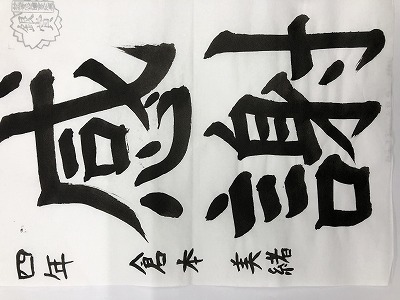 感謝
四年 倉本美緒